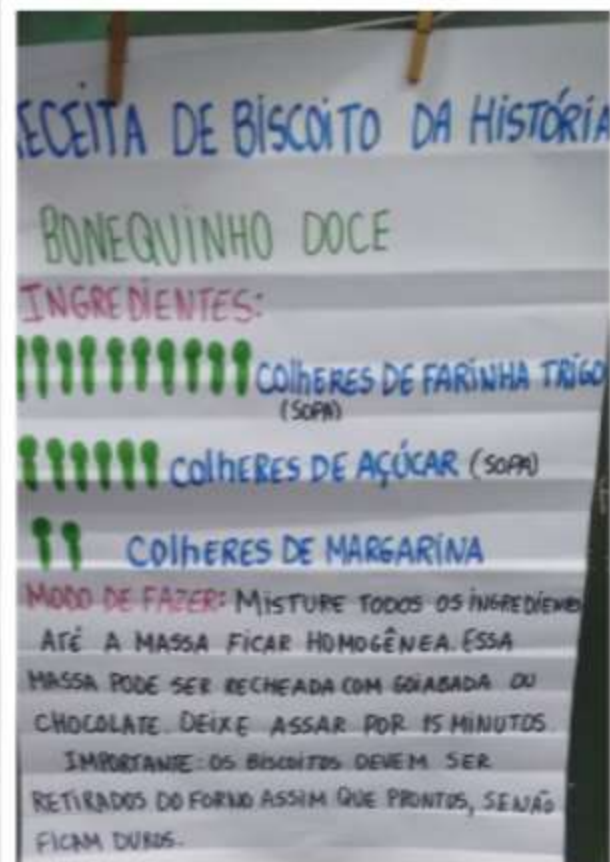 ECEITA DE BISCOITO DA HISTÓRIA
BONEQUINHO DOCE
INGREDIENTES:
COLHERES DE FARINHA TRIGO
(SOPA)
COLHERES DE AÇÚCAR (SOPA)
COLHERES DE MARGARINA
MODO DE FAZER: MISTURE TODOS OS INGREDIENES
ATÉ A MASSA FICAR HOMOGÊNEA. ESSA
MASSA PODE SER RECHEADA COM GOIABADA OU
CHOCOLATE. DEIXE ASSAR POR 15 MINUTOS.
IMPORTANTE: OS BISCOITOS DEVEM SER
RETIRADOS DO FORNO ASSIM QUE PRONTOS, SENÃO
FICAM DUROS.